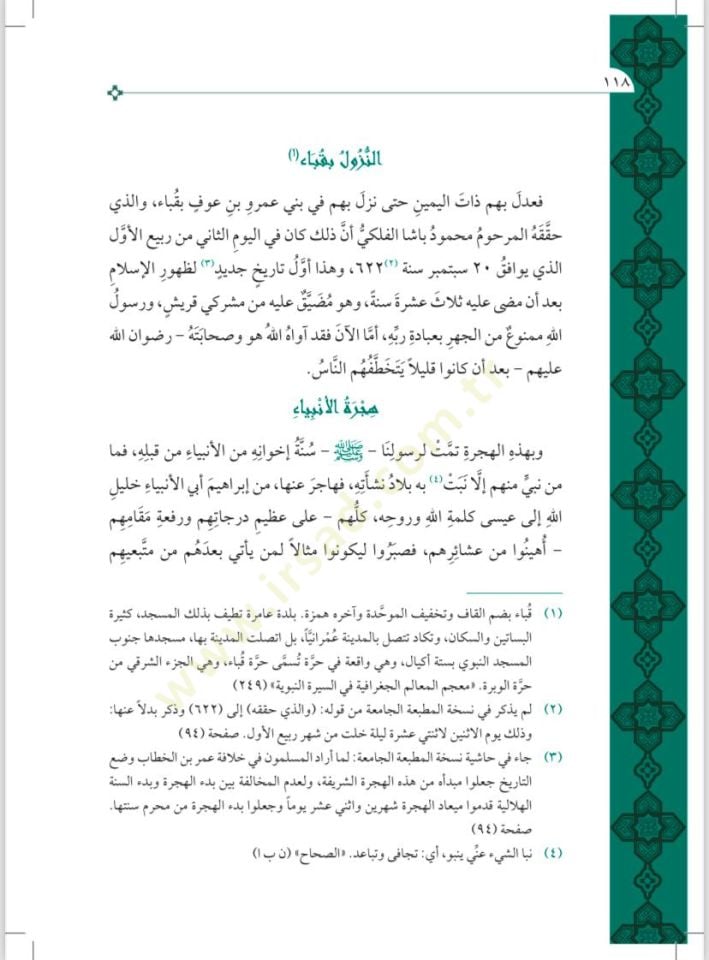 ١١٨
النُّزُولُ بِقُبَاء(١)
فعدلَ بهم ذاتَ اليمينِ حتى نزلَ بهم في بني عمرِو بنِ عوفٍ بقُباء، والذي
حقَّقَهُ المرحومُ محمودُ باشا الفلكيُّ أنَّ ذلك كان في اليومِ الثاني من ربيع الأوَّل
الذي يوافقُ ٢٠ سبتمبر سنة (٢)٦٢٢، وهذا أوَّلُ تاريخٍ جديدٍ(٣) لظهورِ الإسلامِ
بعد أن مضى عليه ثلاثَ عشرةَ سنةً، وهو مُضَيَّقٌ عليه من مشركي قريش، ورسولُ
اللهِ ممنوعٌ من الجهرِ بعبادةِ ربِّه، أمَّا الآنَ فقد آواهُ اللهُ هو وصحابَتَهُ – رضوان الله
عليهم – بعد أن كانوا قليلاً يَتَخَطَّفُهُم النَّاسُ.
هِجْرَةُ الأَنْبِيَاءِ
وبهذهِ الهجرةِ تمَّتْ لرسولِنَا – ﷺ – سُنَّةُ إخوانِهِ من الأنبياءِ من قبلِهِ، فما
من نبيٍّ منهم إلَّا نَبَتْ(٤) به بلادُ نشأتِهِ، فهاجرَ عنها، من إبراهيمَ أبي الأنبياءِ خليلِ
اللهِ إلى عيسى كلمةِ اللهِ وروحِهِ، كلُّهم – على عظيمِ درجاتِهم ورفعةِ مَقَامِهِم
– أُهينُوا من عشائِرِهم، فصبَرُوا ليكونوا مثالاً لمن يأتي بعدَهُم من متَّبعيهِم
(١) قُباء بضم القاف وتخفيف الموحَّدة وآخره همزة. بلدة عامرة تطيف بذلك المسجد، كثيرة
البساتين والسكان، وتكاد تتصل بالمدينة عُمْرانيًّا، بل اتصلت المدينة بها، مسجدها جنوب
المسجد النبوي بستة أكيال، وهي واقعة في حرَّة تُسمَّى حرَّة قُباء، وهي الجزء الشرقي من
حرَّة الوبرة. «معجم المعالم الجغرافية في السيرة النبوية» (٢٤٩)
(٢) لم يذكر في نسخة المطبعة الجامعة من قوله: (والذي حققه) إلى (٦٢٢) وذكر بدلاً عنها:
وذلك يوم الاثنين لاثنتي عشرة ليلة خلت من شهر ربيع الأول. صفحة (٩٤)
(٣) جاء في حاشية نسخة المطبعة الجامعة: لما أراد المسلمون في خلافة عمر بن الخطاب وضع
التاريخ جعلوا مبدأه من هذه الهجرة الشريفة، ولعدم المخالفة بين بدء الهجرة وبدء السنة
الهلالية قدموا ميعاد الهجرة شهرين واثني عشر يوماً وجعلوا بدء الهجرة من محرم سنتها.
صفحة (٩٤)
(٤) نبا الشيء عنِّي ينبو، أي: تجافى وتباعد. «الصحاح» (ن ب ا)
www.irsad.com.tr